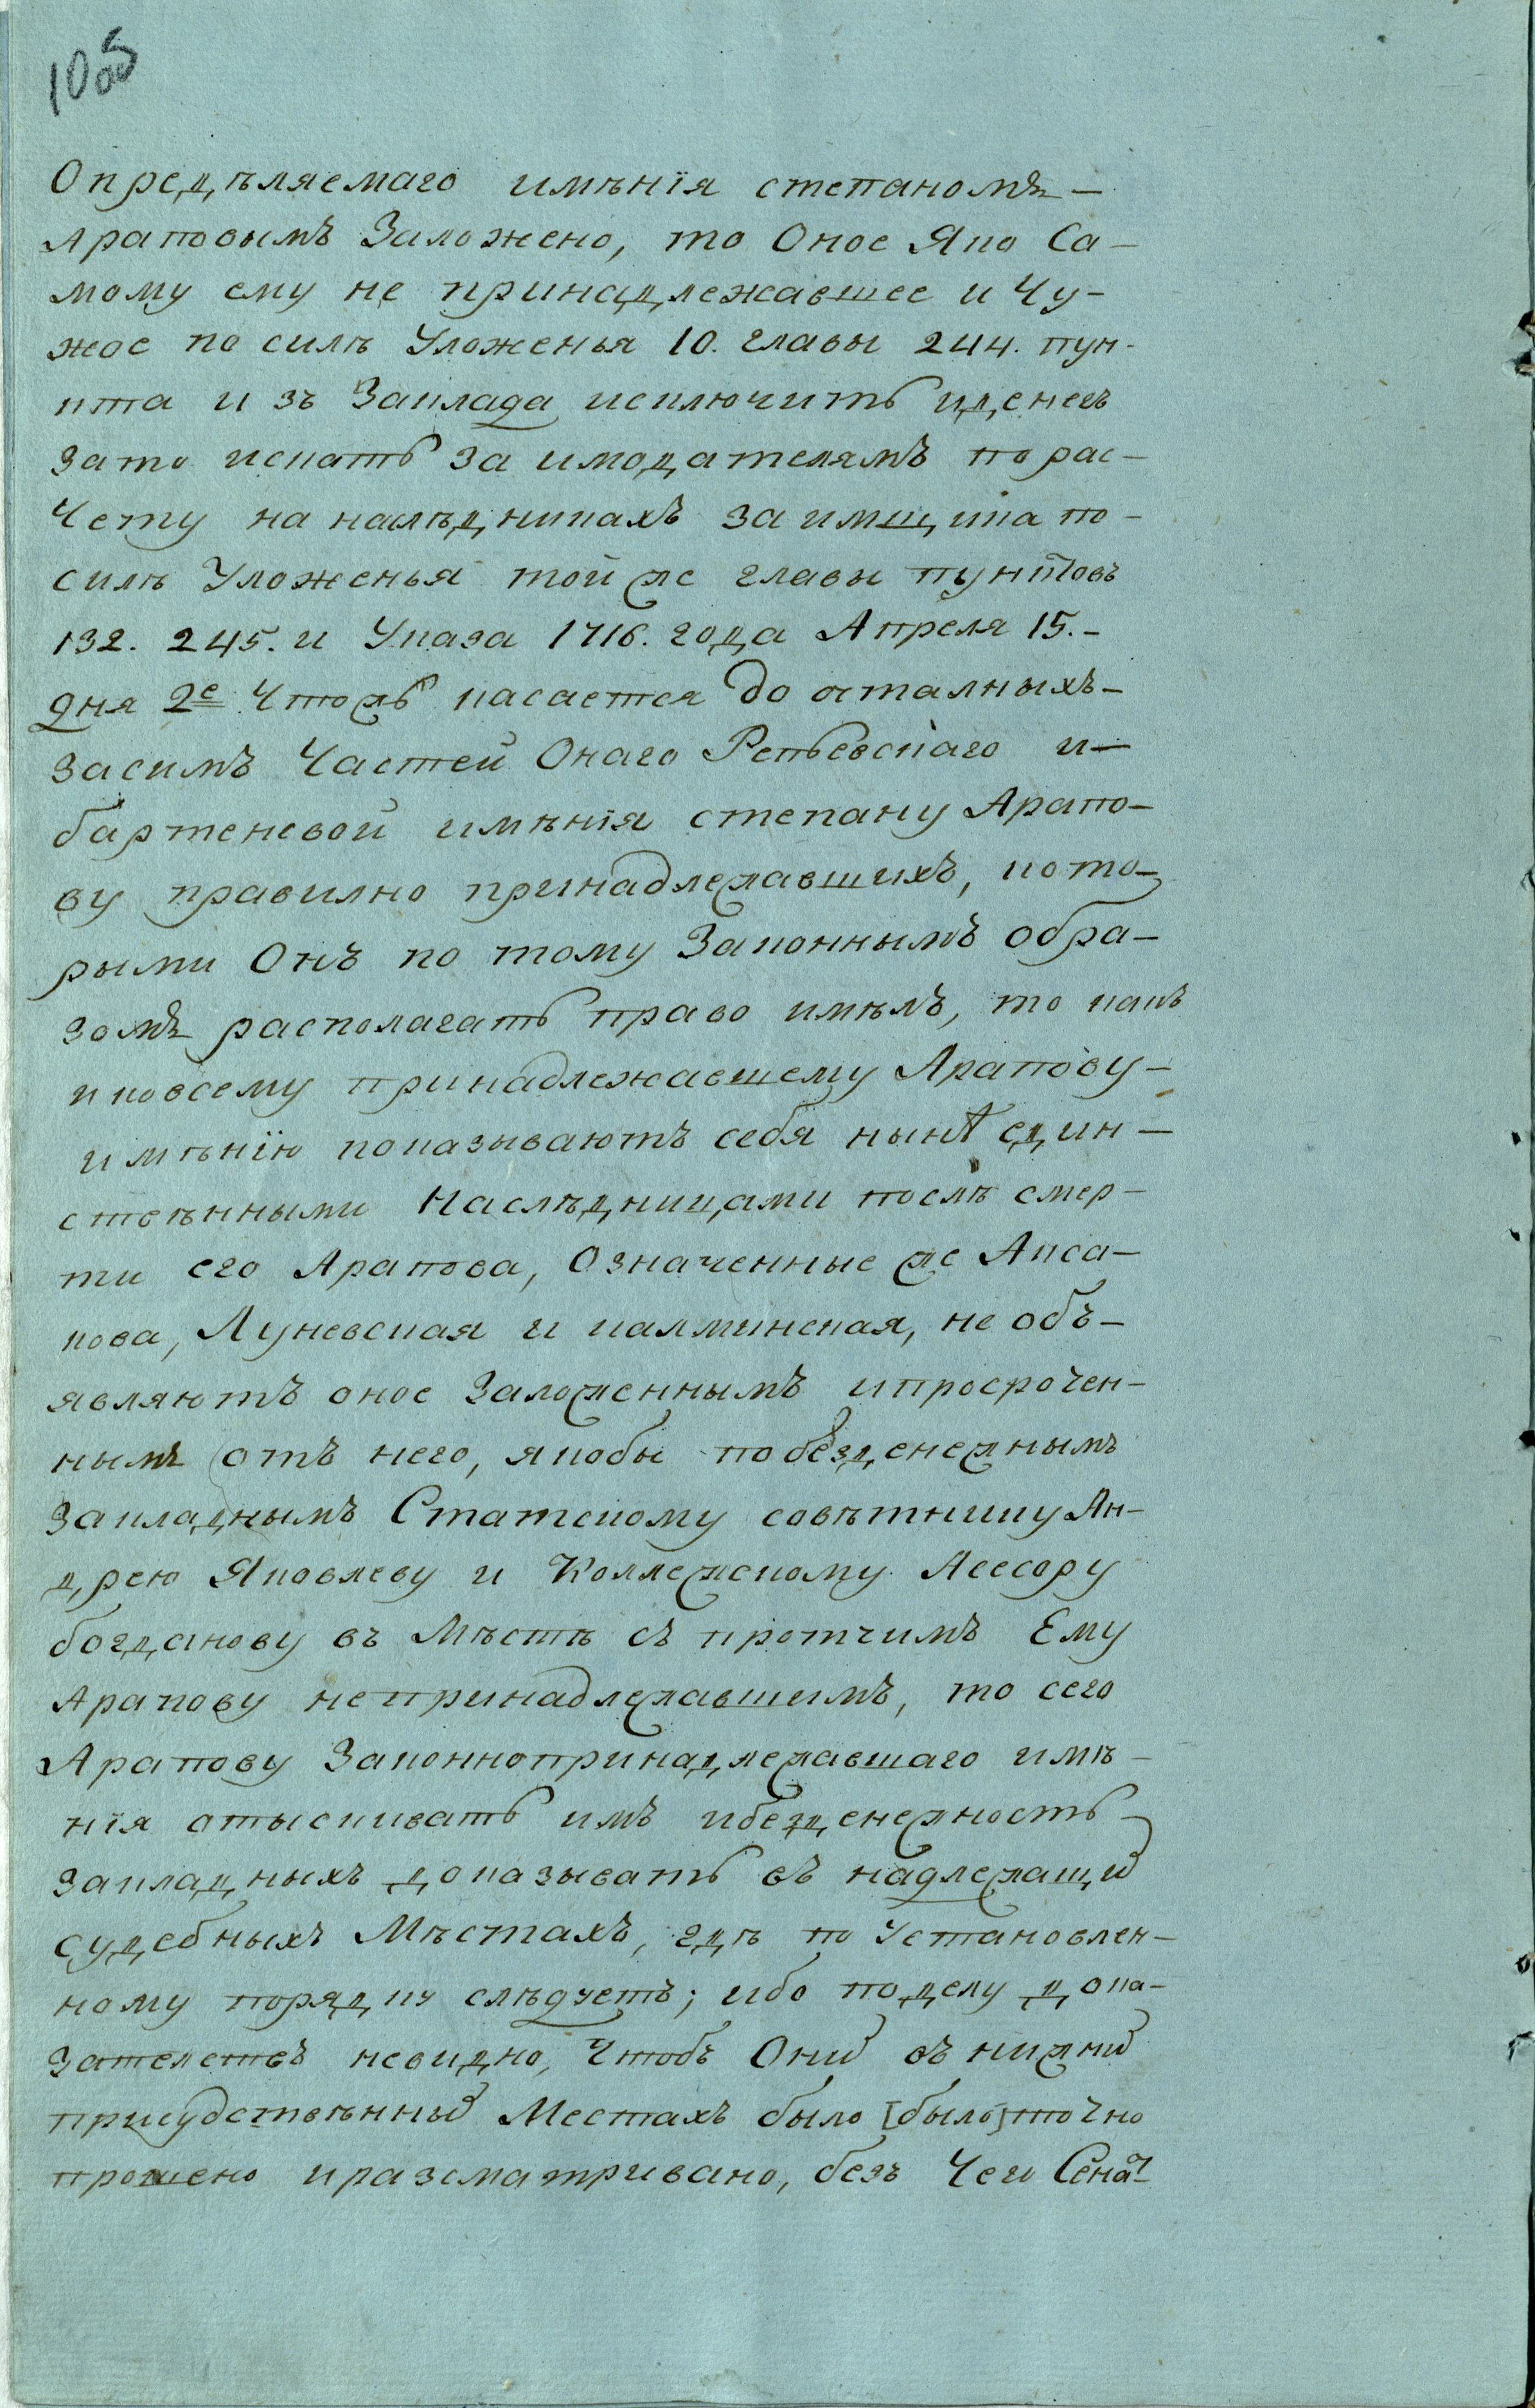 105
Опредѣляемаго имѣнїя степаномъ –
Араповымъ Заложено, то Оное Яко Са–
мому ему не принадлежавшее и Чу–
жое по силѣ Уложенья 10. главы 244. пун–
кта и зъ Заклада исключить иденегъ
зато искать за имодателямъ по рас–
Чету на наслѣдникахъ за имщика по–
силѣ Уложенья той же главы пунктовъ
132. 245. и Указа 1716. года Апреля 15. –
дня 2е Чтожъ касается до осталныхъ –
засимъ Частей Онаго Репьевскаго и –
бартеневой имѣнїя степану Арапо–
ву правилно принадлежавшихъ, кото–
рыми Онъ по тому Законнымъ обра–
зомъ располагать право имѣлъ, то какъ
иковсему принадлежавшему Арапову –
имѣнїю показываютъ себя нынѣ един–
ствѣнными Наслѣдницами послѣ смер–
ти его Арапова, Означенные же Акса–
кова, Луневская и калминская, не объ–
являютъ оное Заложеннымъ ипросрочен–
нымъ отъ него, якобы побезденежнымъ
Закладнымъ Статскому совѣтнику Ан–
дрею Яковлеву и Коллежскому Асесору
богданову въ Мѣстѣ съ протчимъ Ему
Арапову непринадлежавшимъ, то сего
Арапову Законнопринадлежавшаго имѣ–
нїя отыскивать имъ ибезденежность
Закладныхъ доказывать въ надлежащи
судебныхъ Мѣстахъ, гдѣ по Установлен–
ному порядку слѣдуетъ; ибо поделу дока–
зателствъ невидно, Чтобъ Они въ нижни
присудствѣнны Местахъ было [было] точно
прошено иразсматривано, безъ Чего Сенат